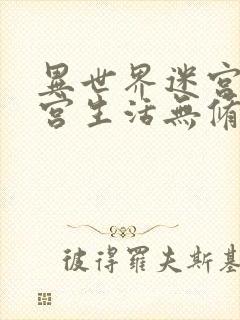 異世界迷宮
宮生活無脩
彼得羅夫斯基